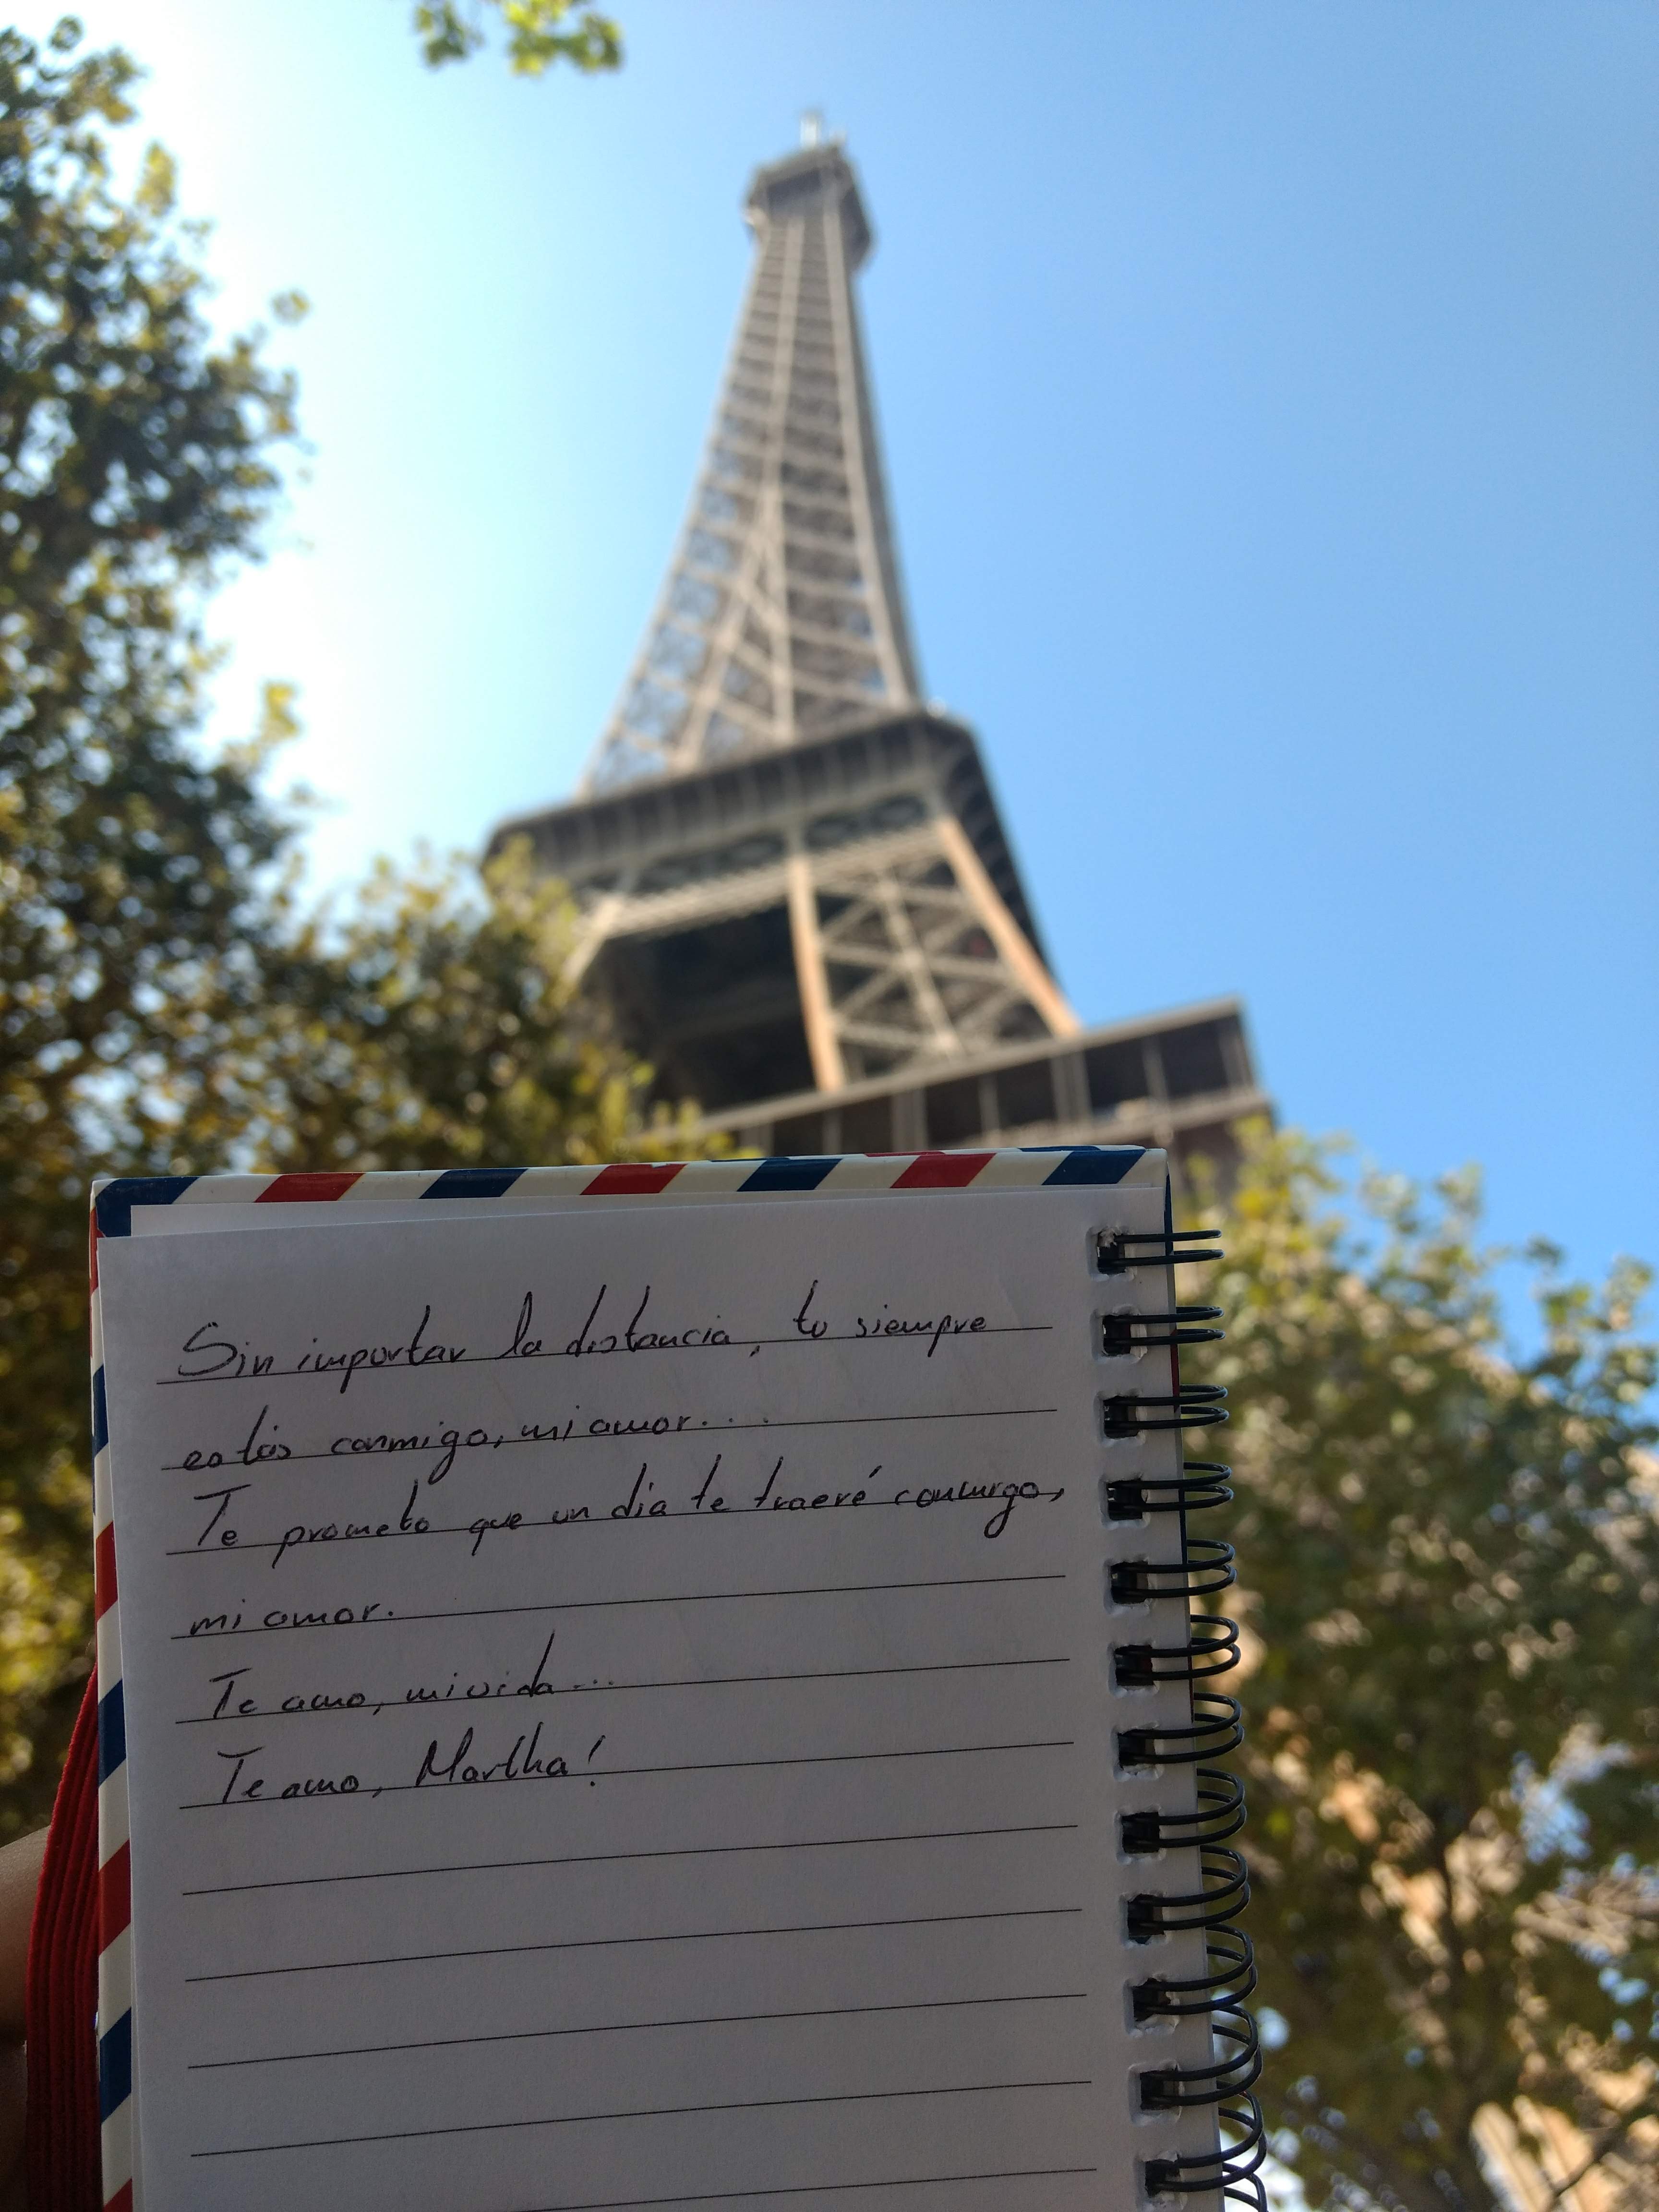 Sin importar la distancia, tu siempre
estás conmigo, mi amor...
Te prometo que un dia te traeré conmigo,
mi amor.
Te amo, mi vida...
Te amo, Martha!